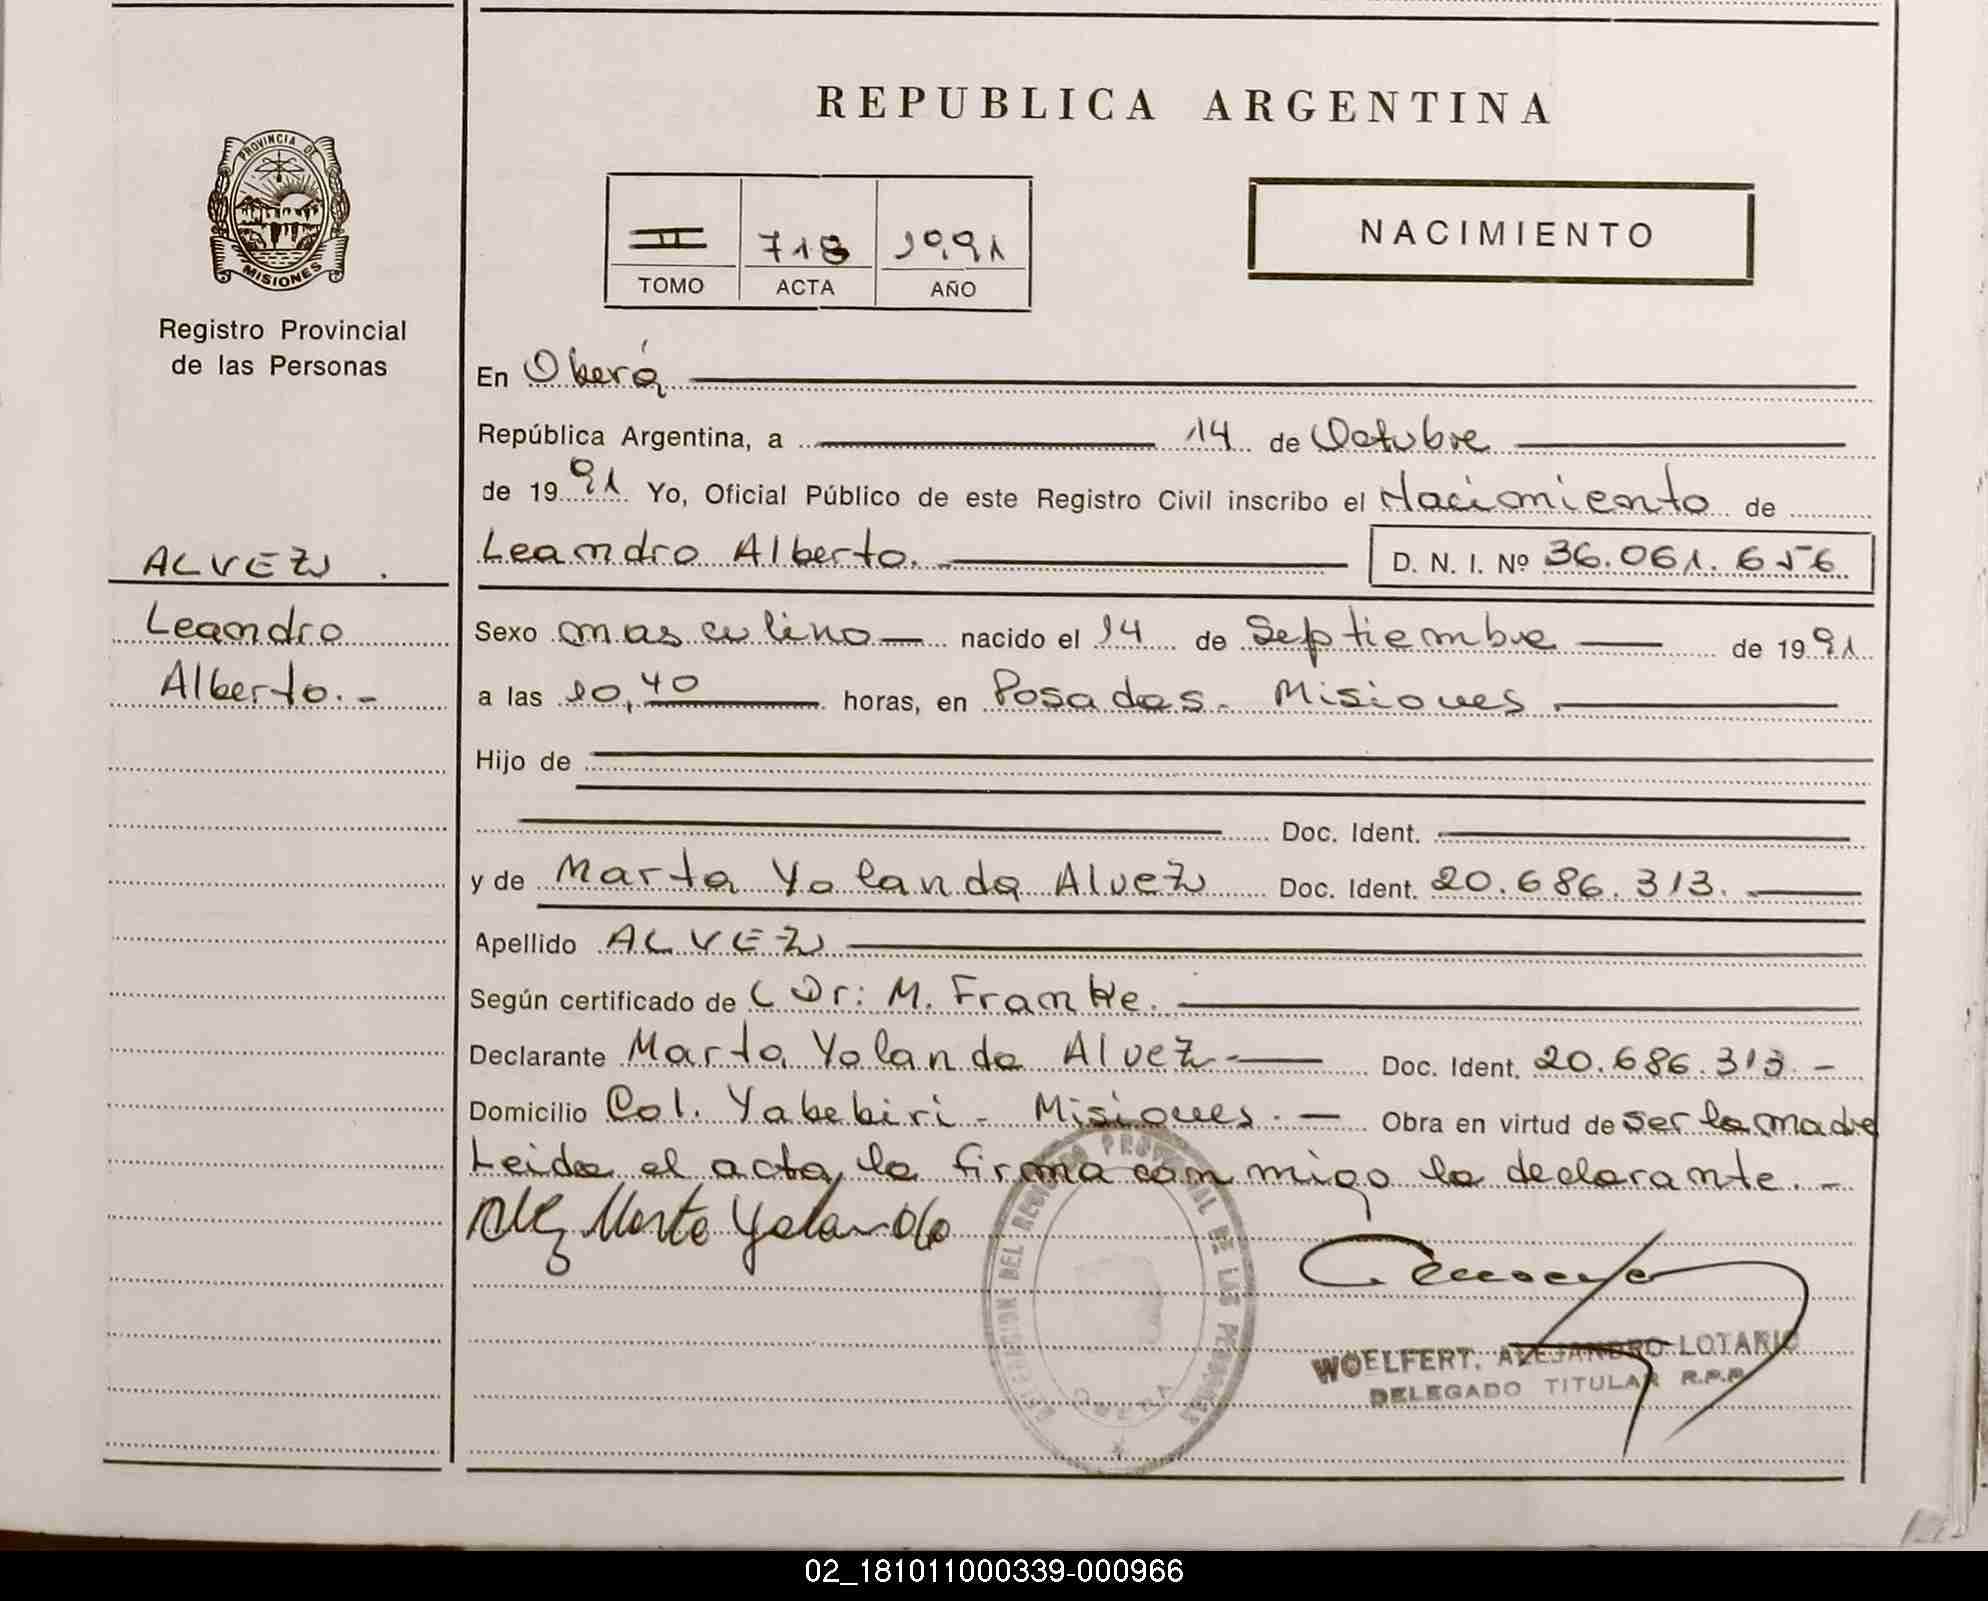 REPUBLICA ARGENTINA
PROVINCIA DE
MISIONES
Registro Provincial
de las Personas
II 718 1991
TOMO ACTA AÑO
NACIMIENTO
En Oberá
República Argentina, a 14 de Octubre
de 1991 Yo, Oficial Público de este Registro Civil inscribo el Nacimiento de
Leandro Alberto. D. N. I. Nº 36.061.656
ALVEZ.
Leandro
Alberto.-
Sexo masculino nacido el 14 de Septiembre de 1991
a las 10,40 horas, en Posadas - Misiones.
Hijo de
Doc. Ident.
y de Marta Yolanda Alvez Doc. Ident. 20.686.313.
Apellido ALVEZ
Según certificado de Dr: M. Franke.
Declarante Marta Yolanda Alvez.- Doc. Ident. 20.686.313.-
Domicilio Col. Yabebiri - Misiones.- Obra en virtud de ser la madre
Leida el acta, la firma conmigo la declarante.-
Alvez Marta Yolanda
DELEGACION DEL REGISTRO PROVINCIAL DE LAS PERSONAS
OBERA
WOELFERT, ALEJANDRO LOTARIO
DELEGADO TITULAR R.P.P.
02_181011000339-000966